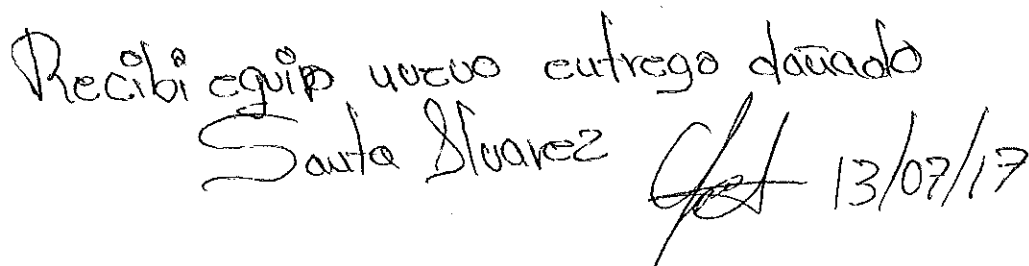 Recibi equip nuevo entrego dañado
Santa Alvarez 13/07/17